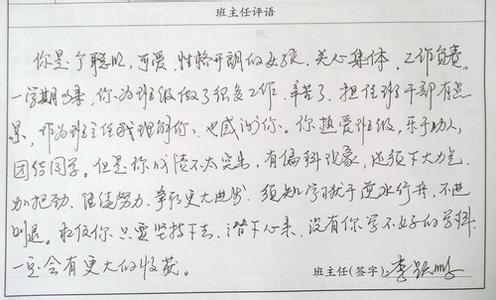 班主任评语
你是个聪明,可爱,性格开朗的女孩,关心集体,工作负责。
一学期以来,你为班级做了很多工作,辛苦了,担任班干部有点
累,作为班主任我理解你,也感谢你。你热爱班级,乐于助人,
团结同学。但是你成绩不太突出,有偏科现象,还须下大力气,
加把劲,继续努力,争取更大进步,须知学习犹于逆水行舟,不进
则退。相信你只要坚持下去,潜下心来,没有你学不好的学科,
一定会有更大的收获。
班主任(签字):李